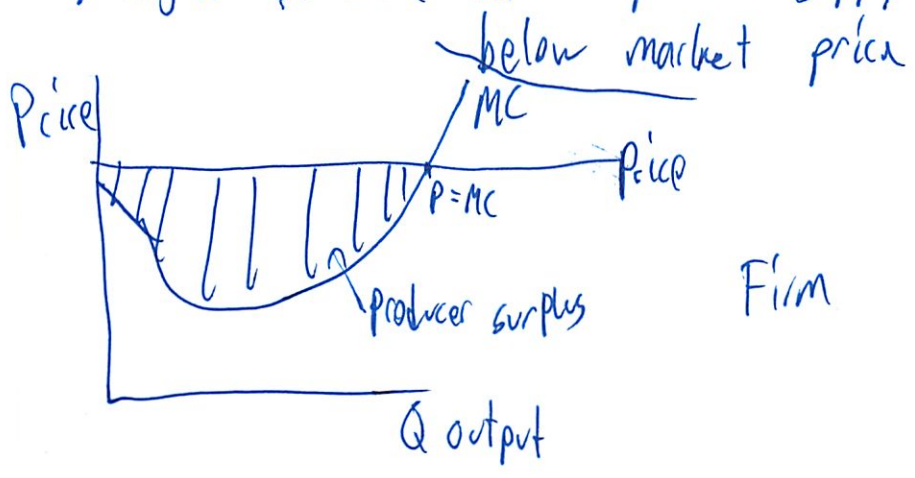 below market price
Price
MC
Price
P=MC
Producer surplus
Firm
Q output